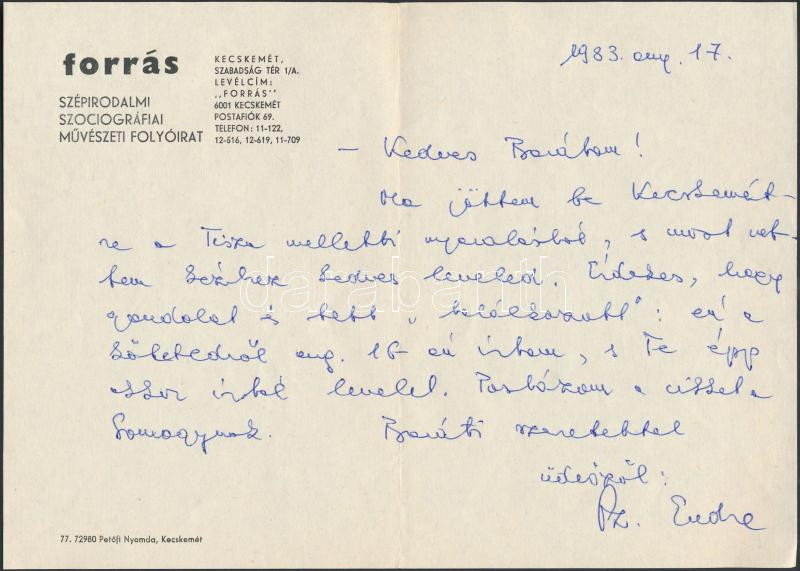 forrás
SZÉPIRODALMI
SZOCIOGRÁFIAI
MŰVÉSZETI FOLYÓIRAT
KECSKEMÉT,
SZABADSÁG TÉR 1/A.
LEVÉLCÍM:
„FORRÁS”
6001 KECSKEMÉT
POSTAFIÓK 69.
TELEFON: 11-122,
12-516, 12-619, 11-709
1983. aug. 17.
– Kedves Barátom!
Ma jöttem be Kecskemét-
re a Tisza melletti nyaralásból, s most vet-
tem kézhez kedves leveled. Érdekes, hogy
gondolat és tett „találkozott”: én a
kötetedről aug. 15-én írtam, s Te épp
akkor írtál levelet. Postázom a cikket a
Somogynak. Baráti szeretettel
üdvözöl:
Pz. Endre
77. 72980 Petőfi Nyomda, Kecskemét
darabanth